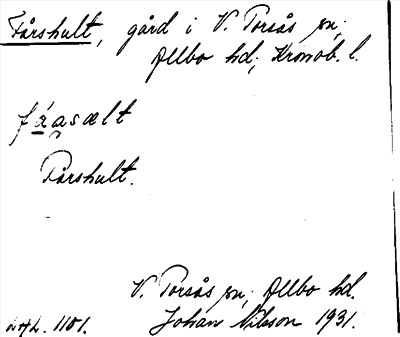 Fårshult, gård i V. Torsås sn;
Allbo hd; Kronob. l.
fá̱a̯sælt
Fårshult.
V. Torsås sn; Allbo hd.
acc. 1101. Johan Nilsson 1931.